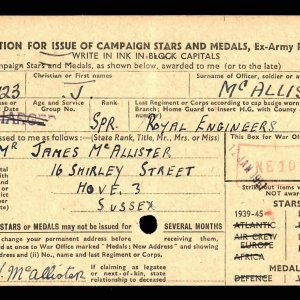 TION FOR ISSUE OF CAMPAIGN STARS AND MEDALS, Ex-Army
WRITE IN INK IN BLOCK CAPITALS
paign Stars and Medals, as shown below, awarded to me (or to the late)
Christian or first names Surname of Officer, soldier or
23 J McALLIS
Age and Service Group No. Rank Last Regiment or Corps according to cap badge
Home Guard to insert H.G. with County
SPR. ROYAL ENGINEERS
ssed to me as follows:— (State Rank, Title, Mr., Mrs. or Miss) This Box for War Of
MR JAMES McALLISTER
16 SHIRLEY STREET
HOVE. 3
SUSSEX
STARS or MEDALS may not be issued for SEVERAL MONTHS
change your permanent address before
ce at War Office marked " Medals: New Address " and showing
o.) name and last Regiment or Corps.
J. McAllister
If claiming as legatee
or next-of-kin, state
relationship to deceased
Strike out items
NOT awarded
STARS
1939-45
ATLANTIC
AIR CREW
EUROPE
AFRICA
MEDAL
DEFENCE